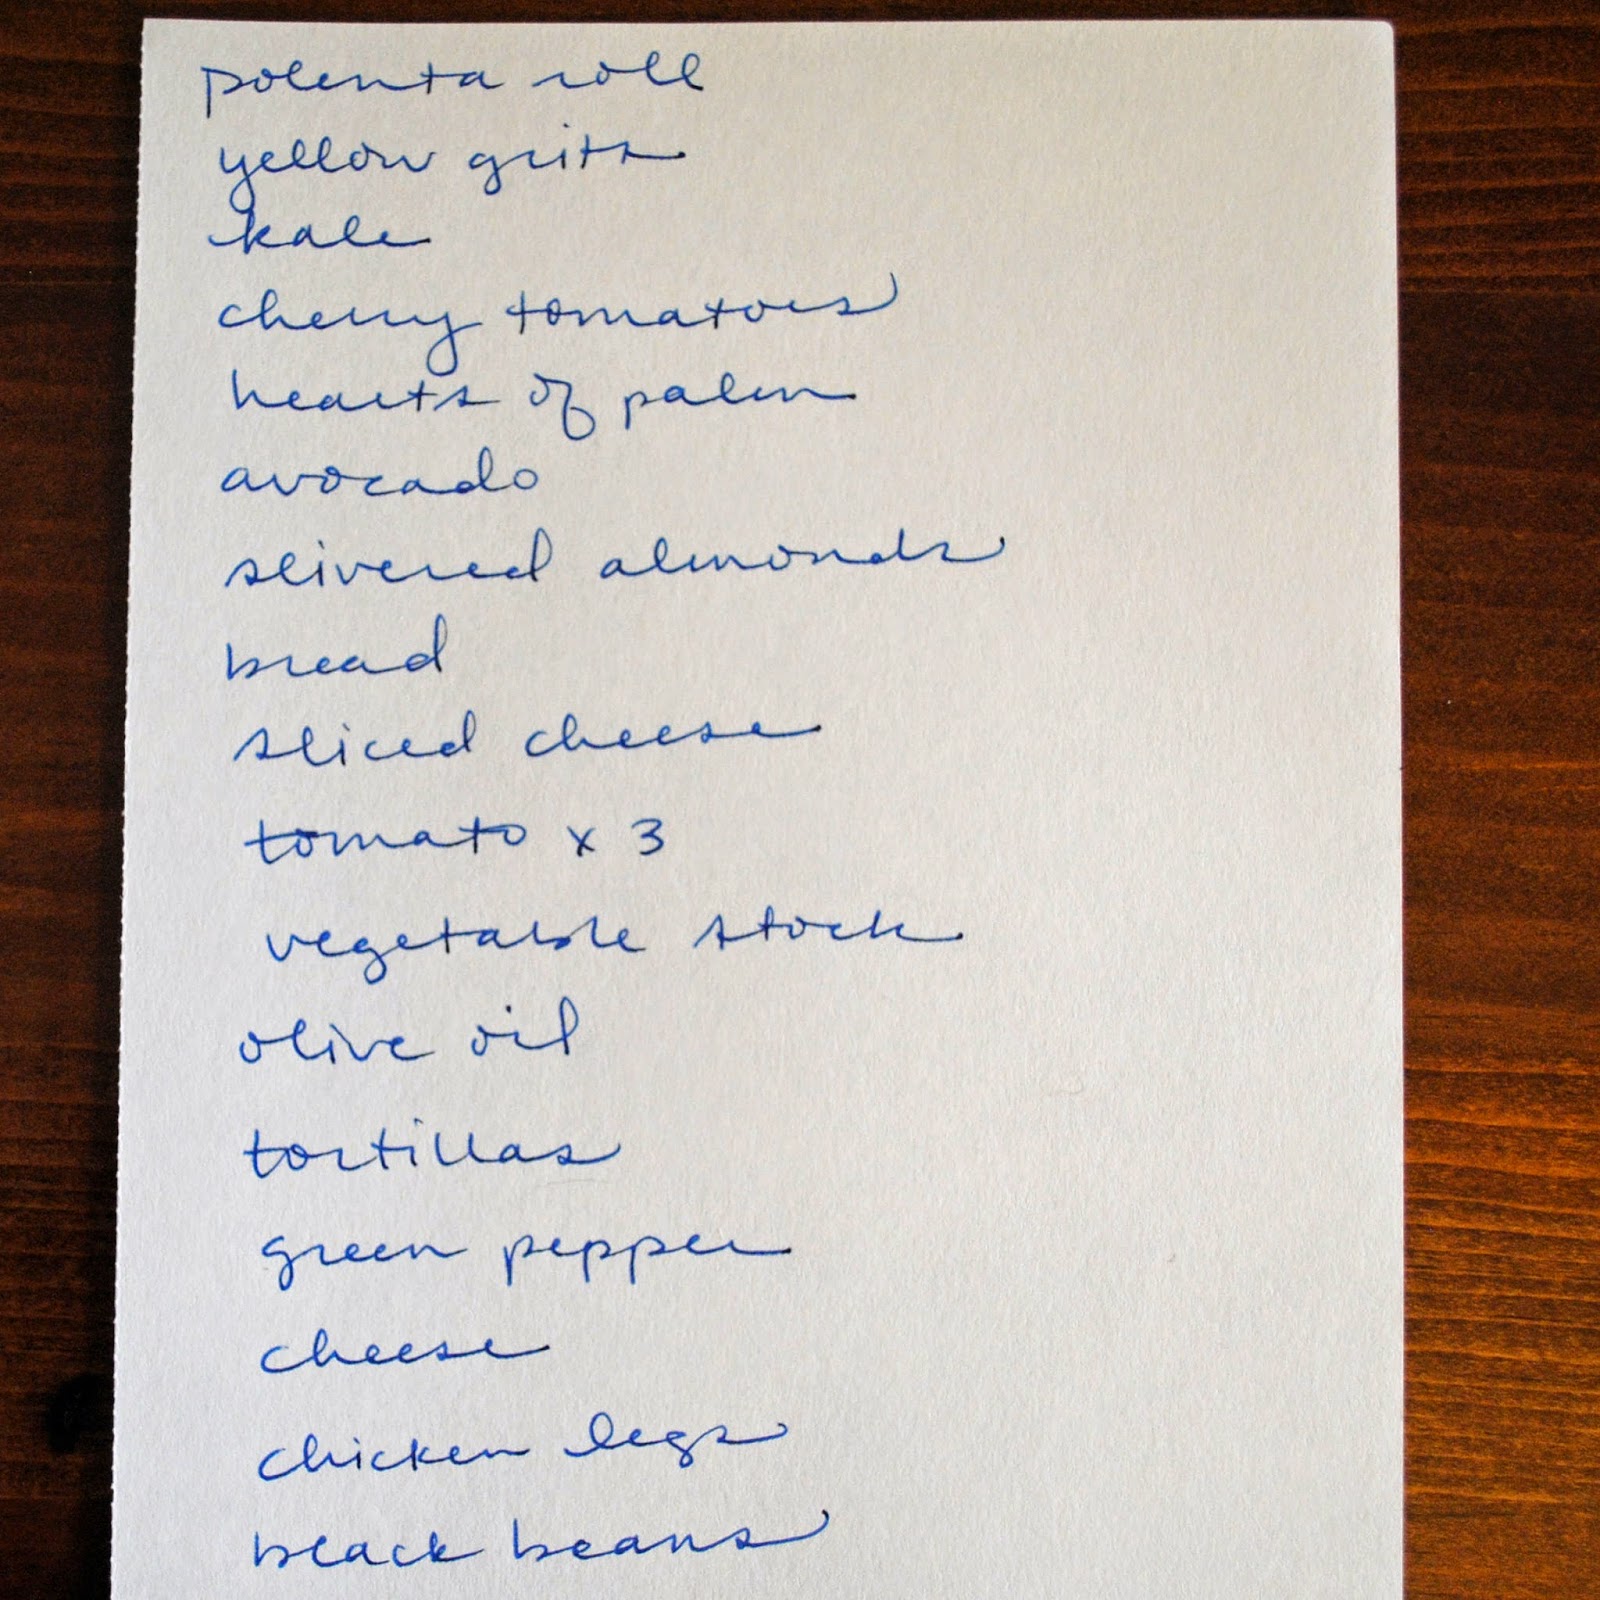 polenta roll
yellow grits
kale
cherry tomatoes
hearts of palm
avocado
slivered almonds
bread
sliced cheese
tomato x 3
vegetable stock
olive oil
tortillas
green pepper
cheese
chicken legs
black beans